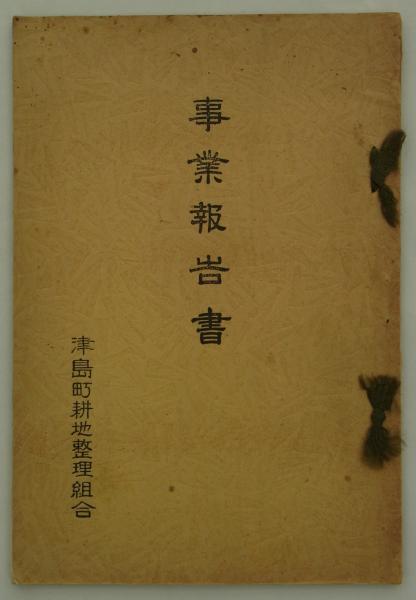 事業報告書
津島町耕地整理組合